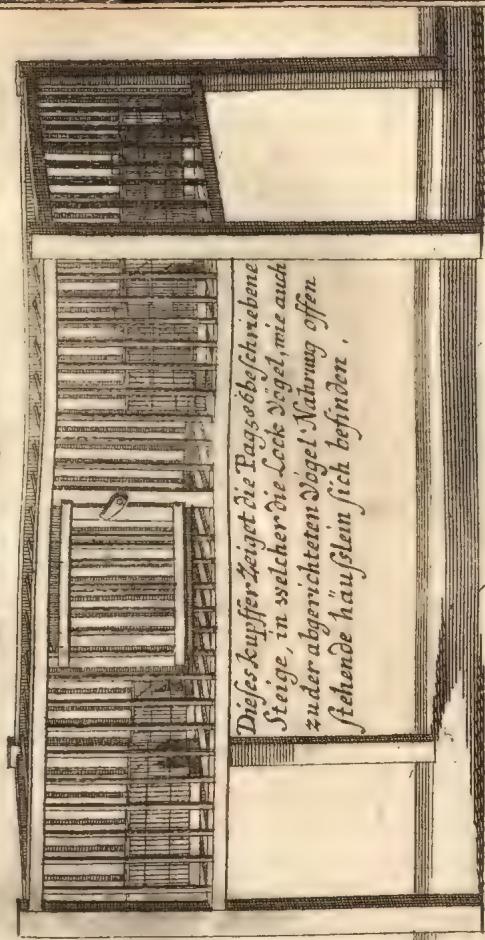 Dieses kupffer zeiget die Pag 506 beschriebene
Steige, in welcher die Lock Vögel, wie auch
zu der abgerichteten Vögel Nahrung offen
stehende häußlein sich befinden.